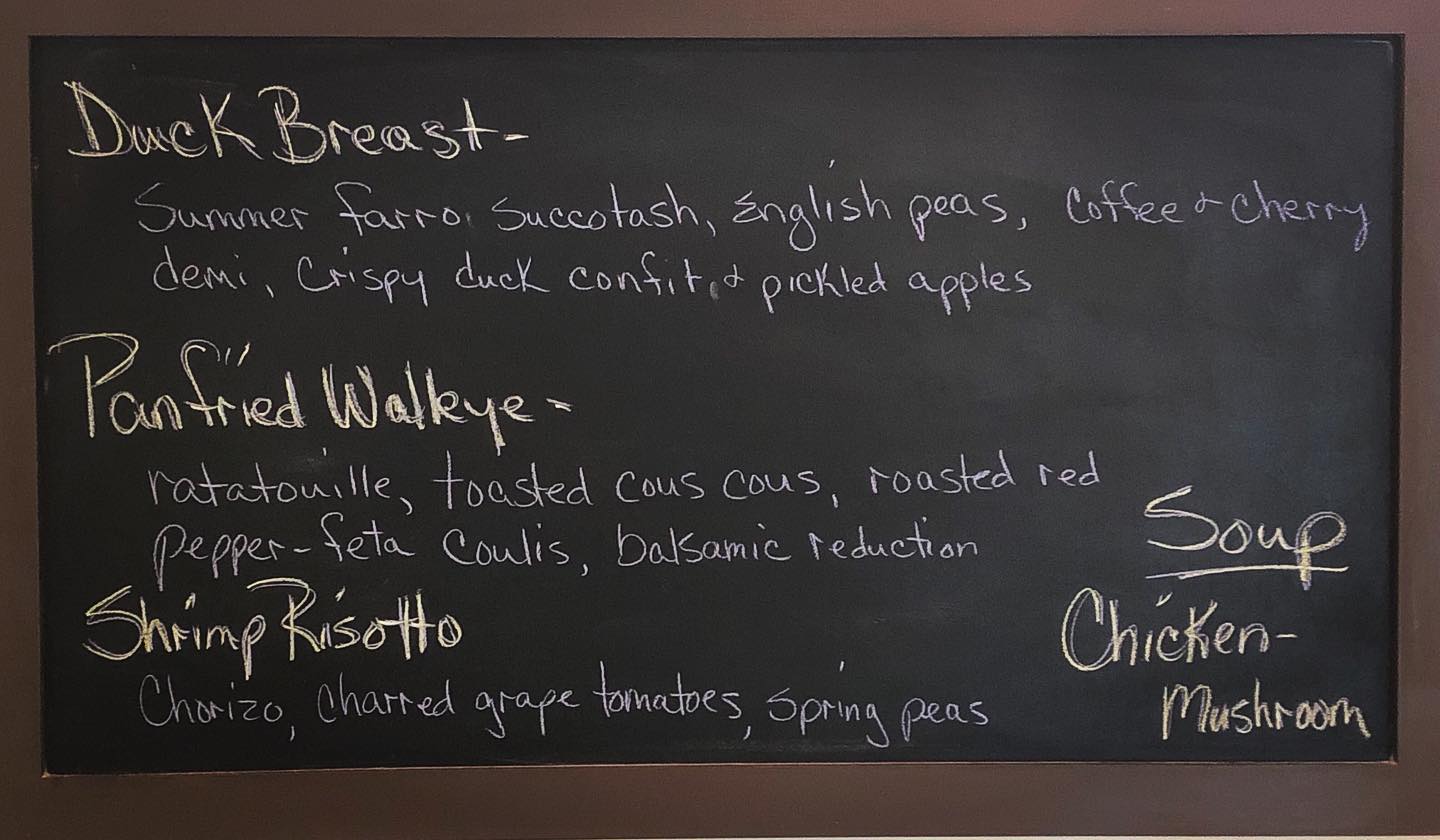 Duck Breast-
Summer farro succotash, English peas, Coffee & cherry
demi, Crispy duck confit, & pickled apples
Panfried Walleye-
ratatouille, toasted cous cous, roasted red
pepper-feta coulis, balsamic reduction
Shrimp Risotto
Chorizo, charred grape tomatoes, spring peas
Soup
Chicken-
Mushroom